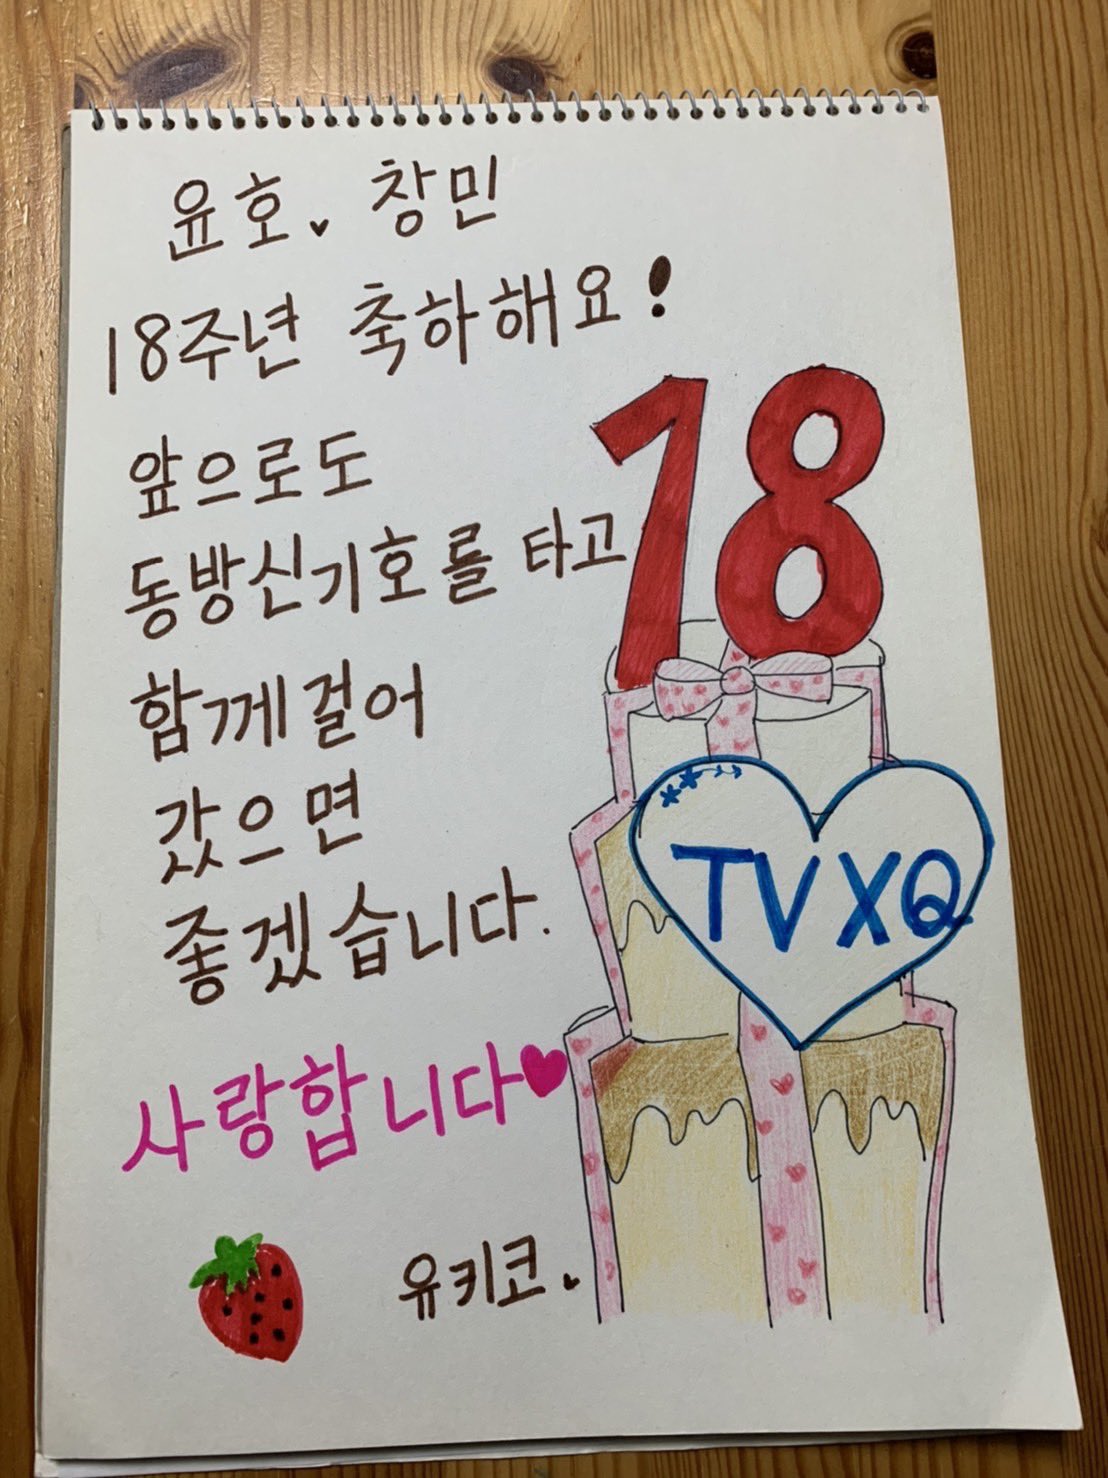 윤호♥창민
18주년 축하해요!
앞으로도
동방신기호를 타고
함께걸어
갔으면
좋겠습니다.
사랑합니다♥
유키코♥
18
TVXQ